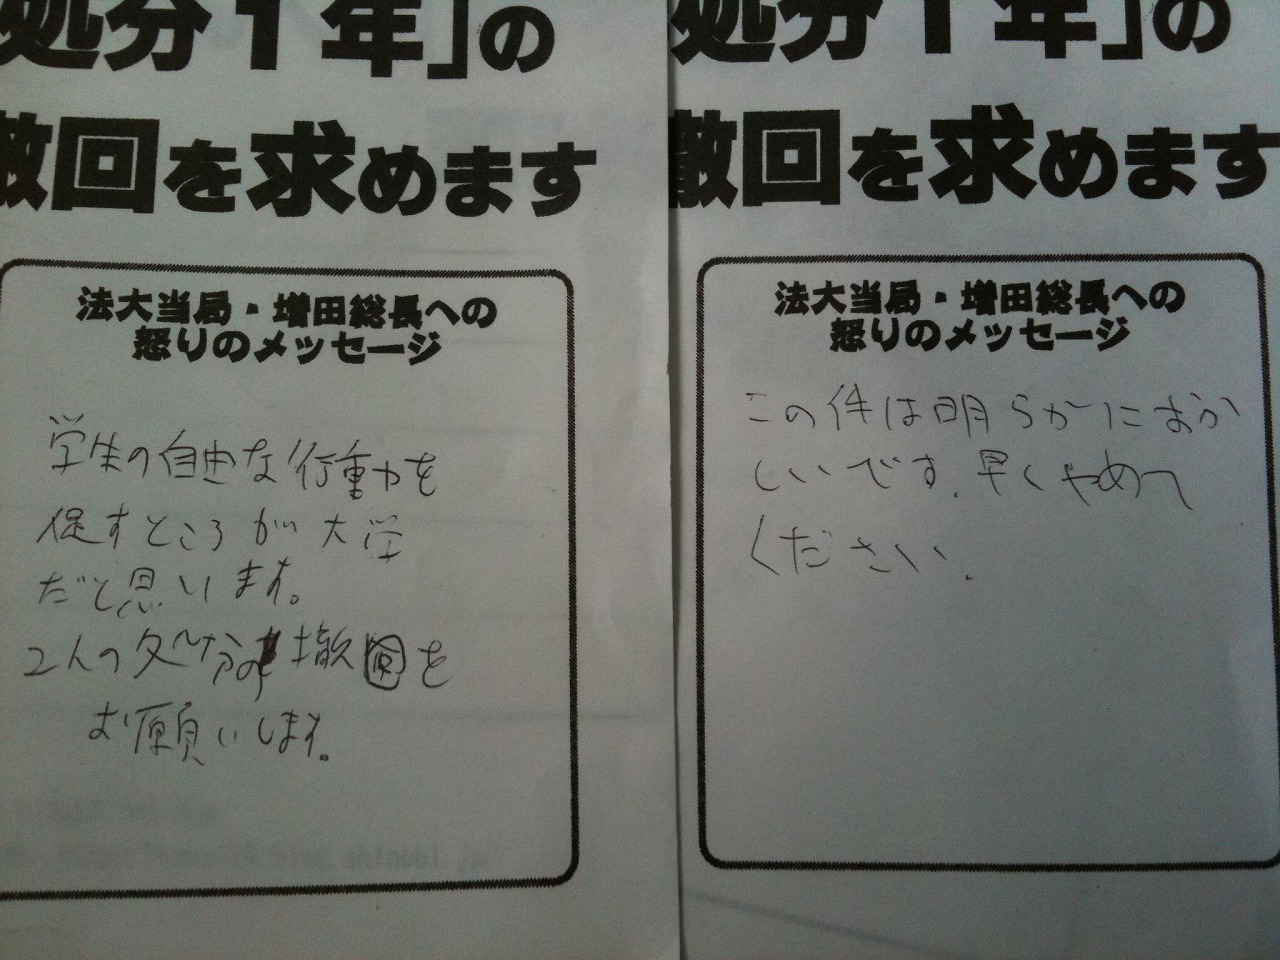 処分1年」の
撤回を求めます
法大当局・増田総長への
怒りのメッセージ
学生の自由な行動力を
促すところが大学
だと思います。
2人の処分の撤回を
お願いします。
処分1年」の
撤回を求めます
法大当局・増田総長への
怒りのメッセージ
この件は明らかにおか
しいです。早くやめて
ください。